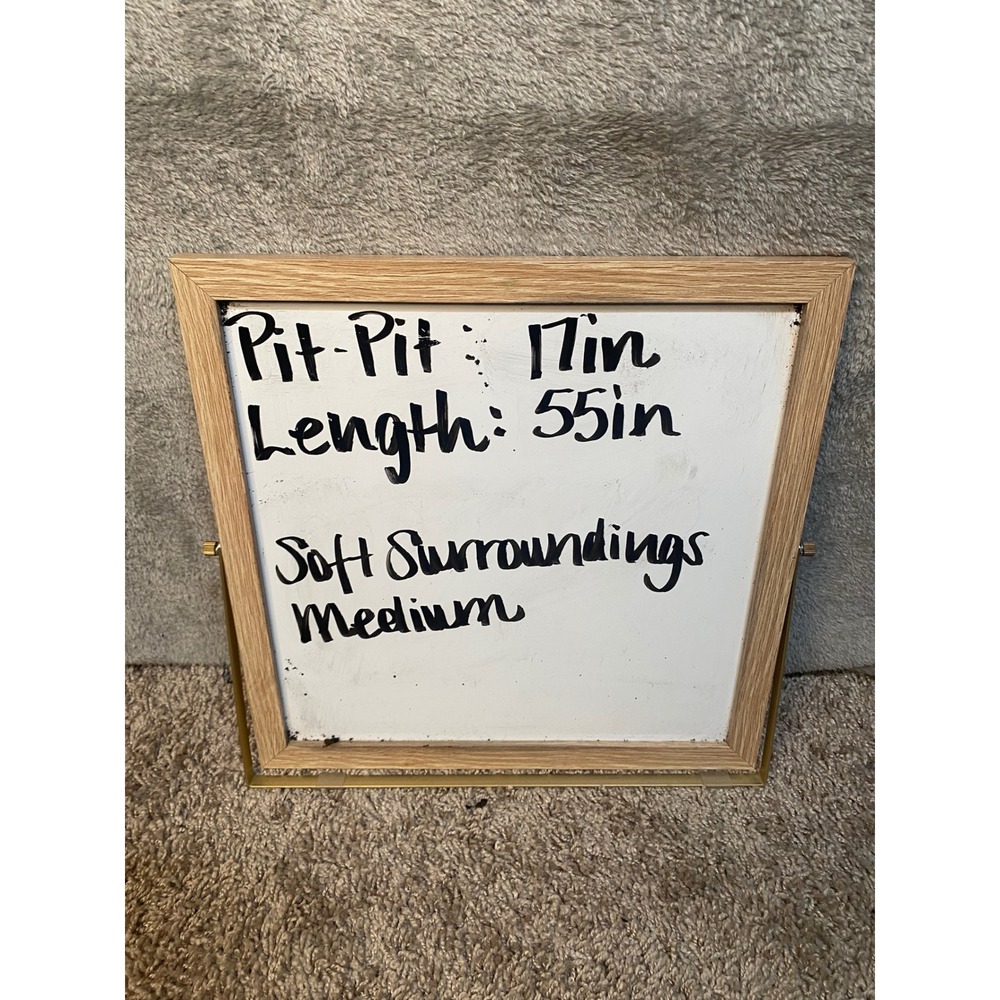 Pit-Pit: 17in
Length: 55in
Soft Surroundings
Medium